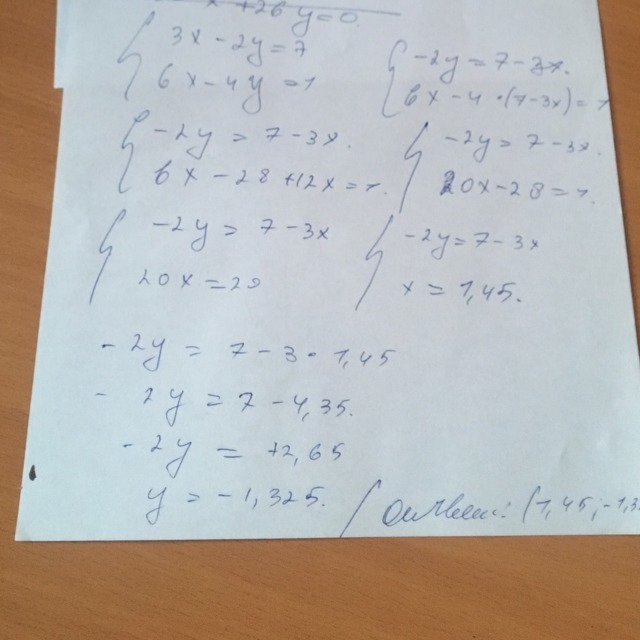 x + 26y = 0
3x - 2y = 7
6x - 4y = 1
-2y = 7 - 3x.
6x - 4 • (7 - 3x) = 1
-2y = 7 - 3x.
6x - 28 + 12x = 1.
-2y = 7 - 3x.
20x - 28 = 1.
-2y = 7 - 3x
20x = 29
-2y = 7 - 3x
x = 1,45.
-2y = 7 - 3 • 1,45
- 2y = 7 - 4,35.
-2y = +2,65
y = -1,325.
Ответ: (1,45; -1,3